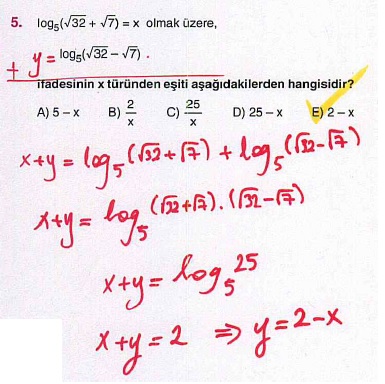 5. log₅(√32 + √7) = x olmak üzere,
+ y = log₅(√32 – √7) .
ifadesinin x türünden eşiti aşağıdakilerden hangisidir?
A) 5 – x B) 2/x C) 25/x D) 25 – x E) 2 – x
x+y = log₅(√32+√7) + log₅(√32-√7)
x+y = log₅(√32+√7).(√32-√7)
x+y = log₅25
x+y = 2 ⇒ y = 2-x